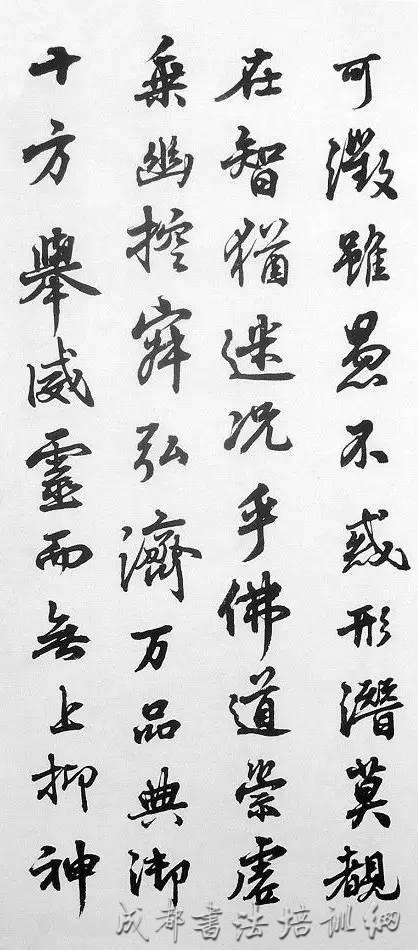 可徵雖愚不惑形潛莫覩
在智猶迷况乎佛道崇虛
乗幽控寂弘濟万品典御
十方舉威靈而無上抑神
成都書法培训網